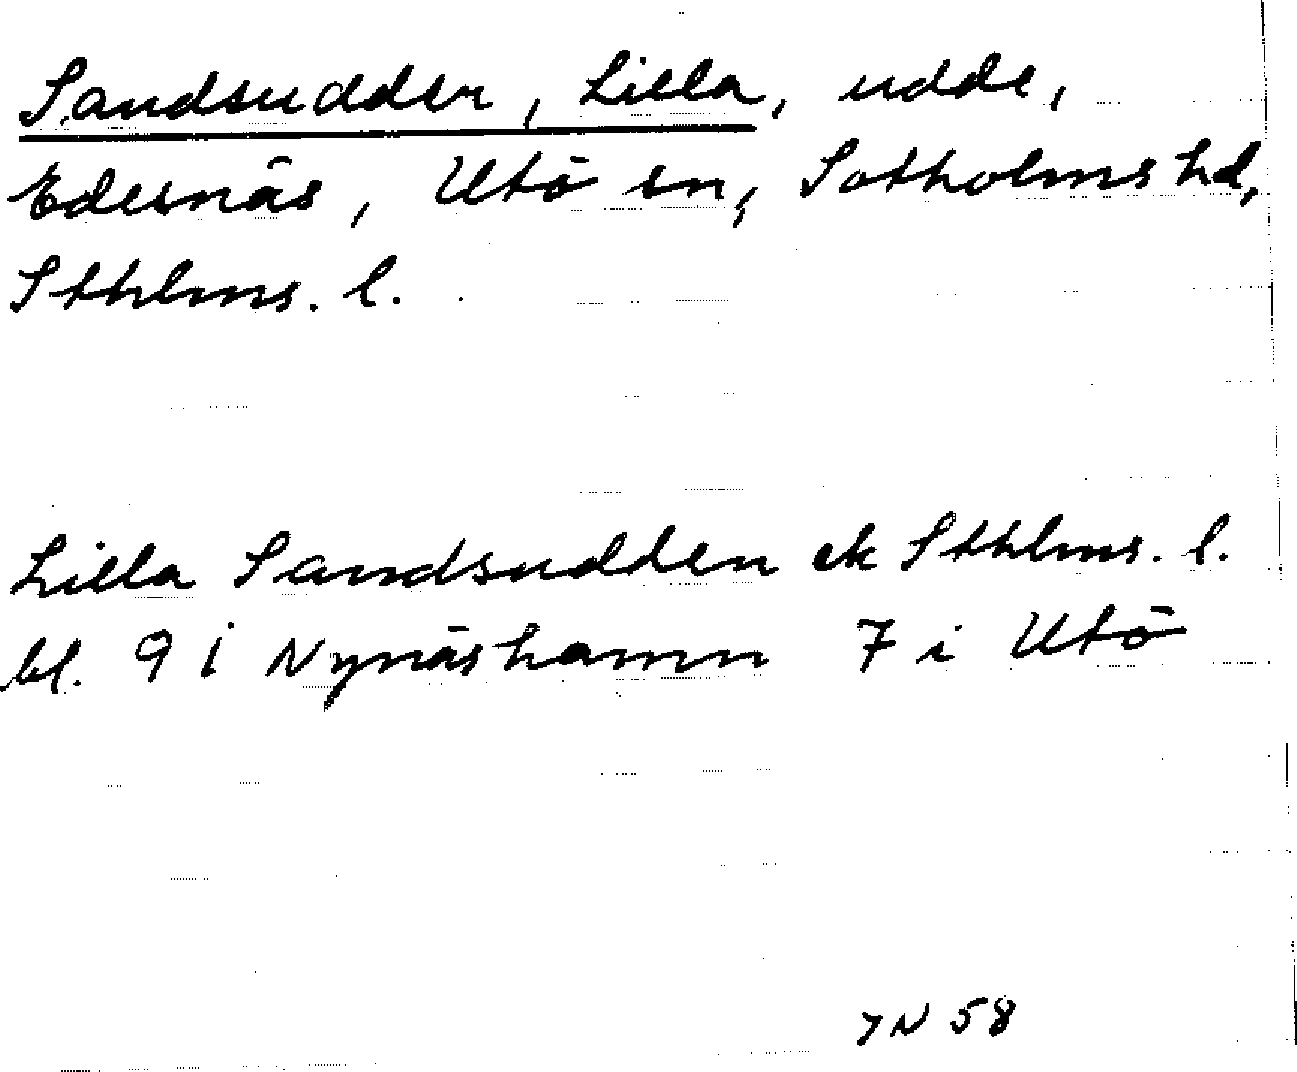 Sandsudden, Lilla, udde,
Edesnäs, Utö sn, Sotholms hd,
Sthlms. l.
Lilla Sandsudden ek Sthlms. l.
bl. 9 i Nynäshamn 7 i Utö
JN 58